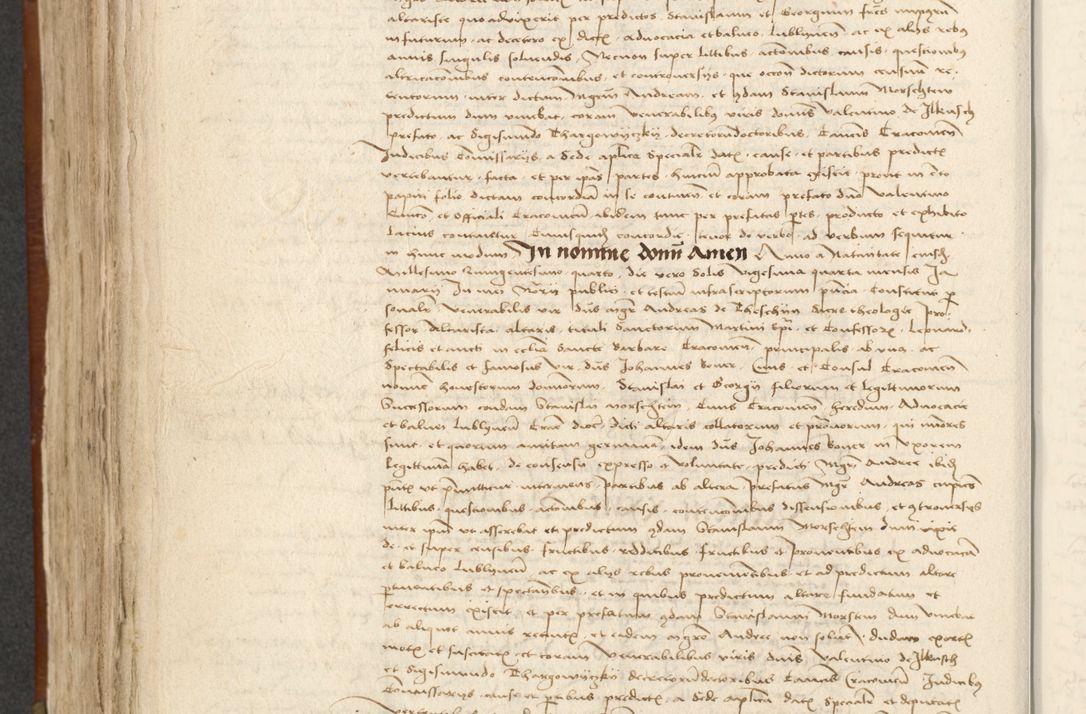 altariste quoadvixerit per predictos Stanislaum et Georgium fres
infuturum ac decetero ex dictis advocacia et balneo Lublinen ac ex alijs rebus
annis singulis solvendis Necnon super litibus actionibus causis questionibus
altercacionibus contencionibus et controversijs que occone dictorum censuum re
tentorum inter dictum Mgrm Andream et qdam Stanislaum Morschteyn
predictum dum vivebat coram venerabilibus viris dominis Valentino de Ilkusch
prefato ac Sigismundo Thargowijczkij decretorum doctoribus Canonicis Cracovien
Judicibus Comissarijs a Sede aplica Specialr datis cause et partibus predictis
vertebantur facta et per ipas partes hincinde approbata prout in
papiri folio dictam concordiam in se continen et coram prefato dno Valentino
Canco et Officiali Cracovien ibidem tunc per prefatas partes producto et exhibito
lacius continetur Cuiusquidem concordie tenor de verbo ad verbum sequitur
in hunc modum In nomine domini Amen Anno a Nativitate eiusdem
Millesimo Quingentesimo quarto die vero Solis vigesima quarta mensis Ja
nuarij In mei Notarij publici et testium infrascriptorum pntia Constitutus per
sonalr venerabilis vir dns mgr Andreas de Theschijn Sacre theologie pro
fessor Altarista altaris tituli Sanctorum Martini Epi et Confessoris Leonardi
felicis et aucti in ecclia Sancte Barbare Cracovien principalis ab una ac
Spectabilis et famosus vir dns Johannes Boner Civis et Consul Cracovien
nomine honestorum dominorum Stanislai et Georgij filiorum et legittimorum
Successorum condam Stanislai Morschteyn Civis Cracovien heredum Advocacie
et balnei Lublinen Crac dioc dicti altaris collatorum et pronorum qui minores
sunt et quorum amitam germanam idem dns Johannes Boner in uxorem
legittimam habet de consensu expresso et voluntate predicti Mgri Andree ibidem
pntis ut pmittitur intervenientis partibus ab altera prefatus Mgr Andreas cupiens
litibus questionibus actionibus causis contencionibus dissensionibus et controversijs
inter ipm ut asserebat et predictum qdam Stanislaum Morschteyn dum vixit
de et super censibus fructibus redditibus fructibus et proventibus ex advocacia
et balneo Lublinen ac ex alijs rebus provenientibus et ad predictum altare
ptinentibus et spectantibus et in quibus predictum altare fundatum et
erectum existit et per prefatum qdam Stanislaum Morsteyn dum vivebat
ab aliquot annis retentis et eidem mgro Andree non solutis dudum exortis
motis et suscitatis et coram venerabilibus viris dnis Valentino de Ilkusch
et Sigismundo Thargowijczkij decretorum doctoribus Canonicis Cracovien Judicibus
Comissarijs cause et partibus predictis a Sede aplica datis Specialr et deputatis